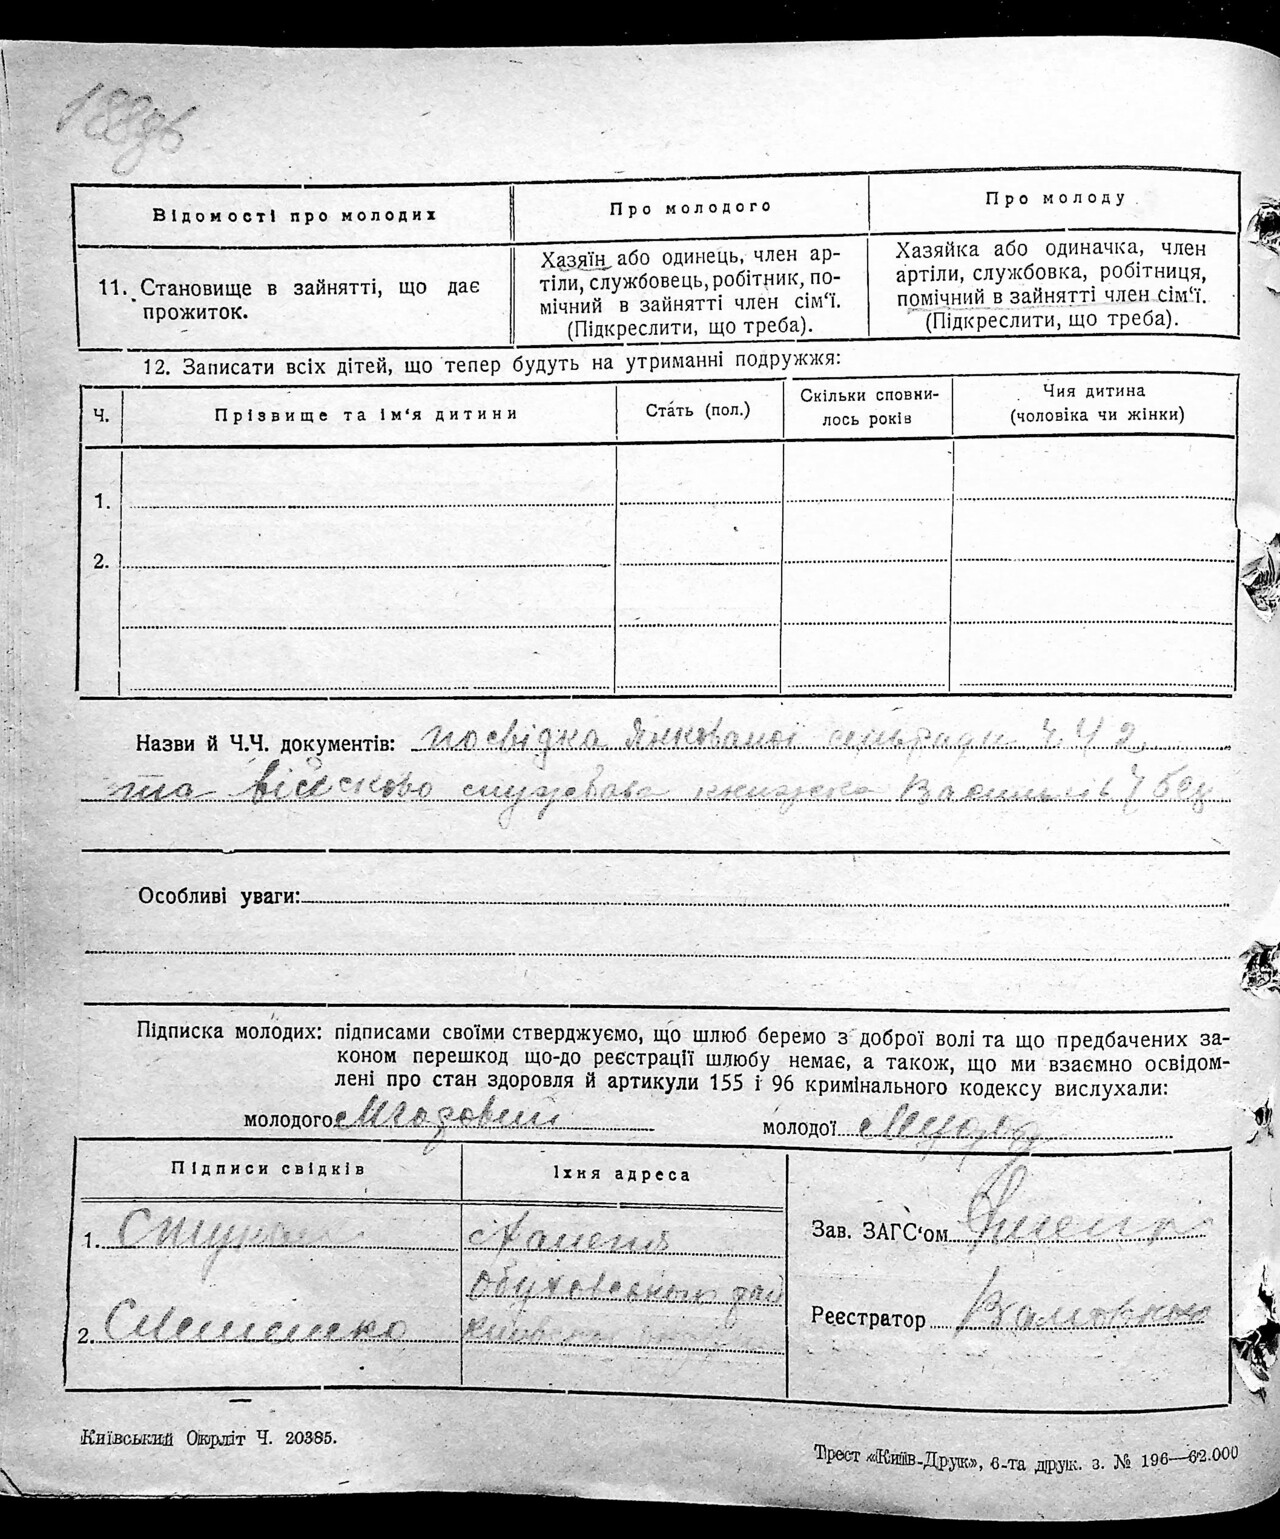 188зв
Відомості про молодих
Про молодого
Про молоду
11. Становище в зайнятті, що дає
прожиток.
Хазяїн або одинець, член ар-
тіли, службовець, робітник, по-
мічний в зайнятті член сім‘ї.
(Підкреслити, що треба).
Хазяйка або одиначка, член
артіли, службовка, робітниця,
помічний в зайнятті член сім‘ї.
(Підкреслити, що треба).
12. Записати всіх дітей, що тепер будуть на утриманні подружжя:
Ч.
Прізвище та ім‘я дитини
Стать (пол.)
Скільки сповни-
лось років
Чия дитина
(чоловіка чи жінки)
1.
2.
Назви й Ч.Ч. документів: посвідка сільради ч. 42
та військово службова книжка
Особливі уваги:
Підписка молодих: підписами своїми стверджуємо, що шлюб беремо з доброї волі та що предбачених за-
коном перешкод що-до реєстрації шлюбу немає, а також, що ми взаємно освідом-
лені про стан здоровля й артикули 155 і 96 кримінального кодексу вислухали:
молодого
молодої
Підписи свідків
Їхня адреса
1.
Обуховського рай
2.
Зав. ЗАГС‘ом
Реєстратор
Київський Окрліт Ч. 20385.
Трест «Київ-Друк», 6-та друк. з. № 196—62.000